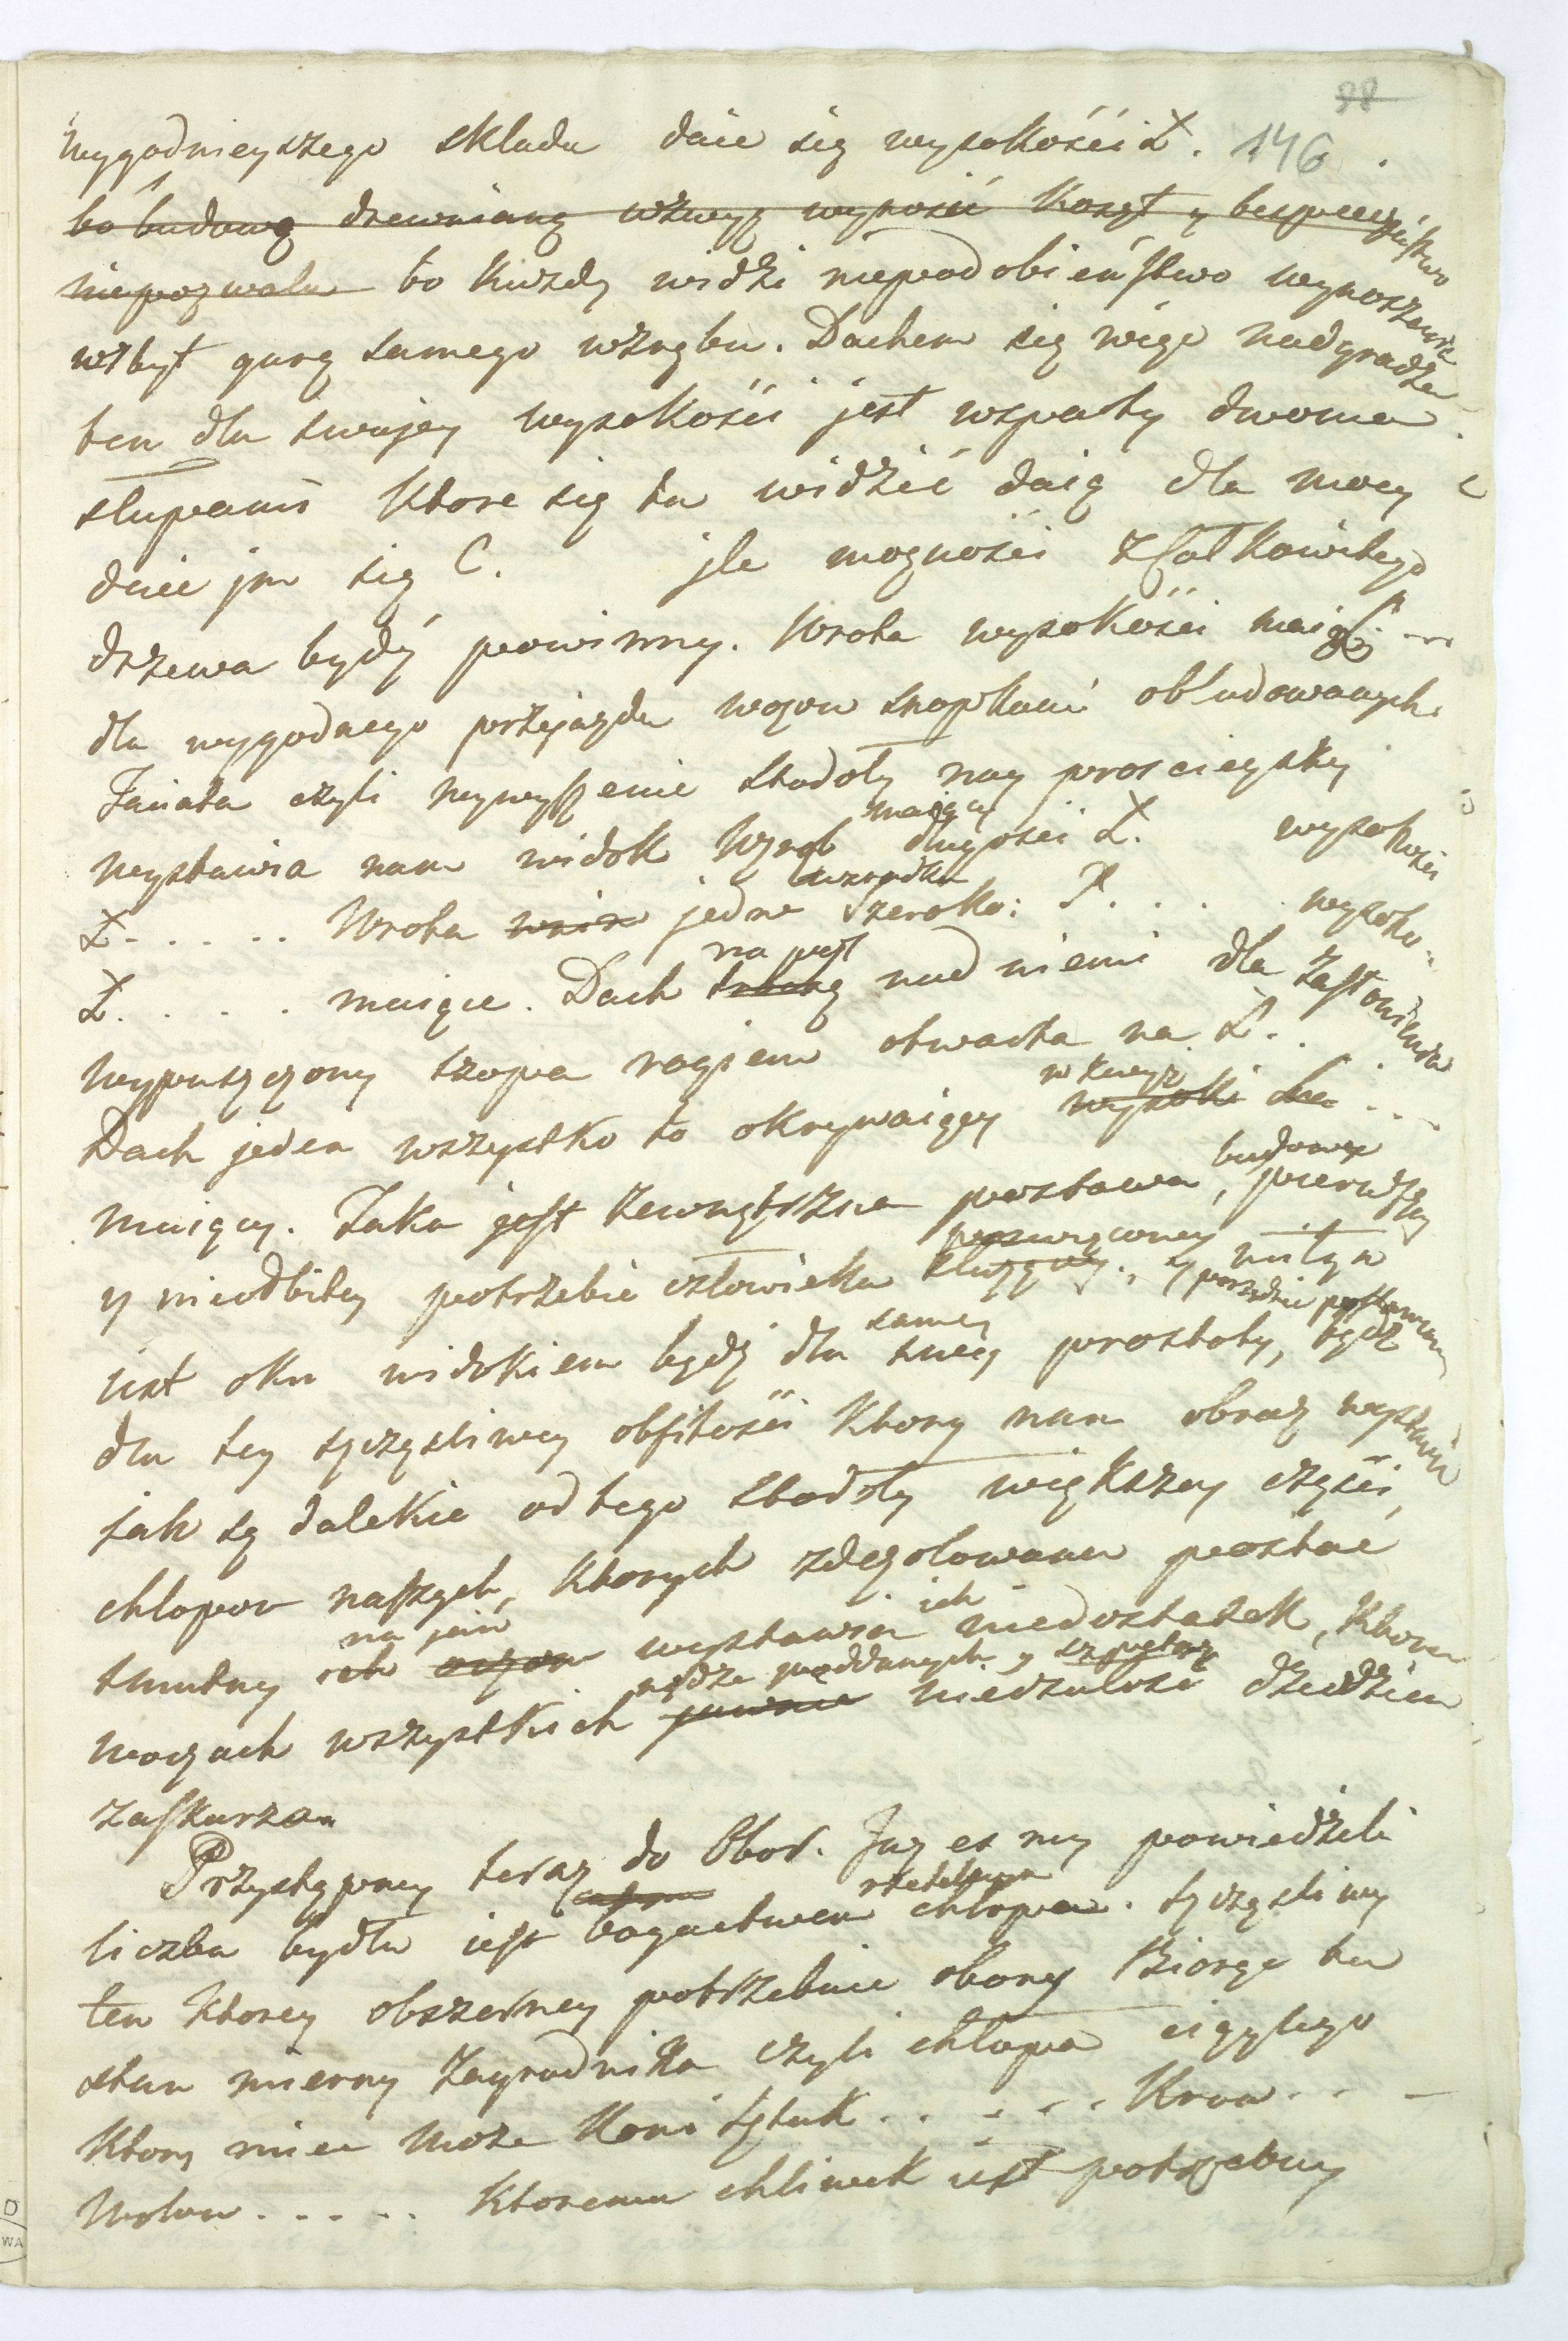 98
wygodnieyszego składu daie się wysokości Ł. 146.
bo budowę drewnianą wzwyż wynosić koszt y bespieczeństwo
niepozwala bo każdy widzi niepodobieństwo wynoszenia
wzbyt gurę samego wzrębu. Dachem się więc nadgradza
ten dla swojey wysokości jest wsparty dwoma
słupami ktore się tu widzić daią dla mocy
daie jm się C. jle mozności z całkowitego
drzewa bydź powinny. Wrota wysokości maią Ł. ...
dla wygodnego przejazdu wozow snopkami obładowanych.
Faiata czyli wywyszenie stodoły nay prościeyszy
wystawia nam widok Wzrąb maiący długości Ł. wysokości
Ł. . . . . Wrota jedne wzrodku szeroko: Ł. . . . wysoko..
Ł. . . . . maiące. Dach na pół nad niemi dla zasłonienia
wypuszczony szopa rogiem otwarta na Ł. .
Dach jeden wszystko to okrywaiący wzwyż wysoki Łee ...
maiący. Taka jest zewnętrzna postawa budowy, pierwszey
y nieodbitey potrzebie człowieka poswięconey służącey., y miłym
iest oku widokiem bydź dla samey swey prostoty, bydź porządnie postawiony
dla tey szczęsliwey obfitości ktorey nam obraz wystawia
jak są dalekie od tego stodoły większey części
chłopow naszych, ktorych zdezolowana postać
smutny na jaw wystawia ich niedostatek, ktora
woczach wszystkich nędze poddanych y szpetną niedzałość dziedzica
zaskarza
Przystąpmy teraz do Obor. Juz es my powiedzieli
liczba bydła iest bogactwem rzetelnym chłopa. szczęsliwy
ten ktorey obszerney potrzebuie obory Biorąc tu
stan mierny Zagrodnika czyli chłopa ciągłego
ktory miec moze koni sztuk . . . . . Krow . . -
Wołow . . . . . ktoremu chliwek iest potrzebny